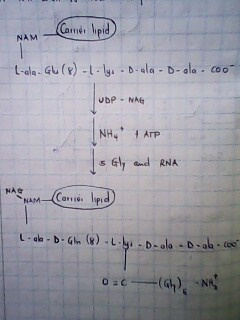 NAM - Carrier lipid
L-ala-Glu(8)-L-lys-D-ala-D-ala-COO⁻
UDP-NAG
NH₄⁺ + ATP
5 Gly and RNA
NAG
NAM - Carrier lipid
L-ala-D-Gln(8)-L-lys-D-ala-D-ala-COO⁻
O=C—(Gly)₅-NH₃⁺